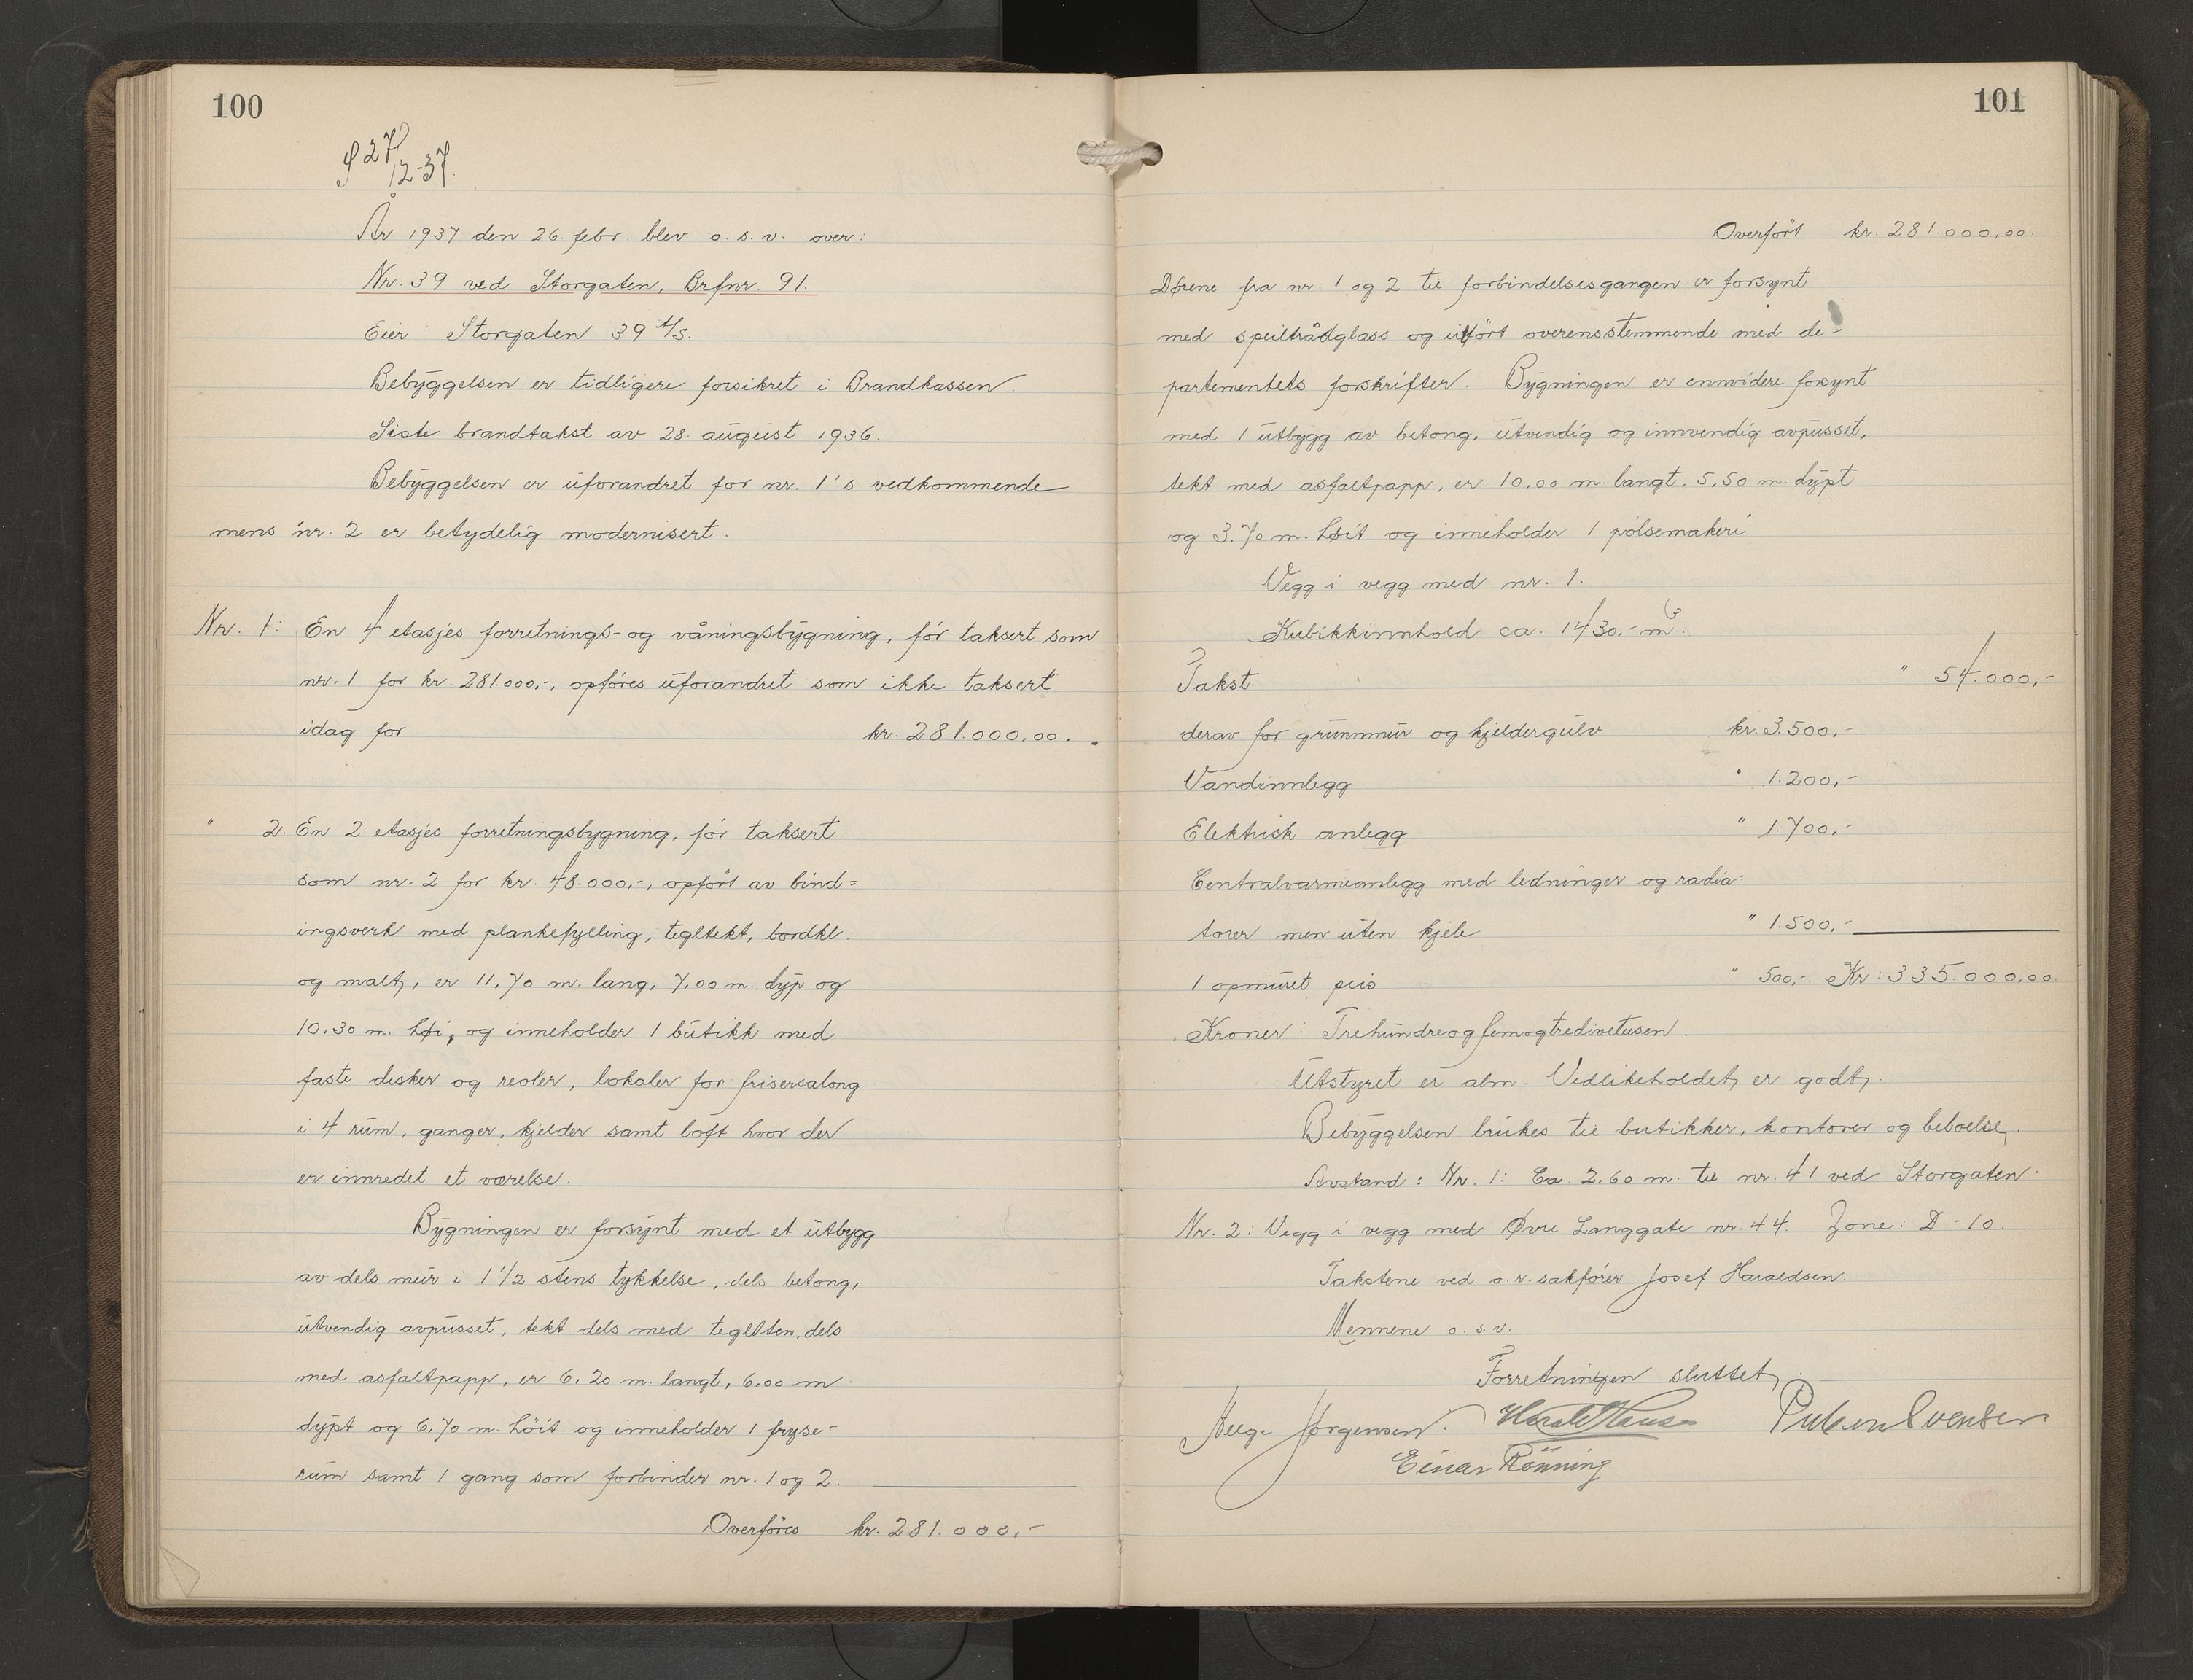 100
S 27/12-37.
År 1937 den 26. febr. blev o. s. v. over:
Nr. 39 ved Storgaten, Brfnr. 91.
Eier: Storgaten 39 A/S.
Bebyggelsen er tidligere forsikret i Brandkassen.
Siste brandtakst av 28. august 1936.
Bebyggelsen er uforandret for nr. 1's vedkommende
mens nr. 2 er betydelig modernisert.
Nr. 1: En 4 etasjes forretnings- og våningsbygning, før taksert som
nr. 1 for kr. 281.000,-, opføres uforandret som ikke taksert
idag for kr. 281.000,00.
" 2. En 2 etasjes forretningsbygning, før taksert
som nr. 2 for kr. 48.000,-, opført av bind=
ingsverk med plankefylling, tegltekt, bordkl.
og malt, er 11,70 m. lang, 7,00 m. dyp og
10,30 m. høi, og inneholder 1 butikk med
faste disker og reoler, lokaler for frisersalong
i 4 rum, ganger, kjelder samt loft hvor der
er innredet et værelse.
Bygningen er forsynt med et utbygg
av dels mur i 1 1/2 stens tykkelse, dels betong,
utvendig avpusset, tekt dels med teglsten, dels
med asfaltpapp, er 6,20 m. langt, 6,00 m.
dypt og 6,70 m. höit og inneholder 1 fryse-
rum samt 1 gang som forbinder nr. 1 og 2.
Overføres kr. 281.000,-
101
Overført kr. 281.000,00.
Dørene fra nr. 1 og 2 til forbindelsesgangen er forsynt
med speiltrådglass og utført overensstemmende med de=
partementets forskrifter. Bygningen er ennvidere forsynt
med 1 utbygg av betong, utvendig og innvendig avpusset,
tekt med asfaltpapp, er 10,00 m. langt, 5,50 m. dypt
og 3,70 m. høit og inneholder 1 pølsemakeri.
Vegg i vegg med nr. 1.
Kubikkinnhold ca. 1430,- m3.
Takst " 54.000,-
derav for grunnmur og kjeldergulv kr. 3.500,-
Vandinnlegg " 1.200,-
Elektrisk anlegg " 1.700,-
Centralvarmeanlegg med ledninger og radia=
torer men uten kjele " 1.500,-
1 opmuret peis " 500,- Kr: 335.000,00.
Kroner: Trehundreogfemogtredivetusen.
Utstyret er alm. Vedlikeholdet er godt.
Bebyggelsen brukes til butikker, kontorer og beboelse.
Avstand: Nr. 1: Ca. 2,60 m. til nr. 41 ved Storgaten.
Nr. 2: Vegg i vegg med Øvre Langgate nr. 44. Zone: D - 10.
Takstene ved o. r. sakfører Josef Haraldsen.
Mennene o. s. v.
Forretningen sluttet.
Helge Jørgensen. Harald Hansen Svensen
Einar Rönning